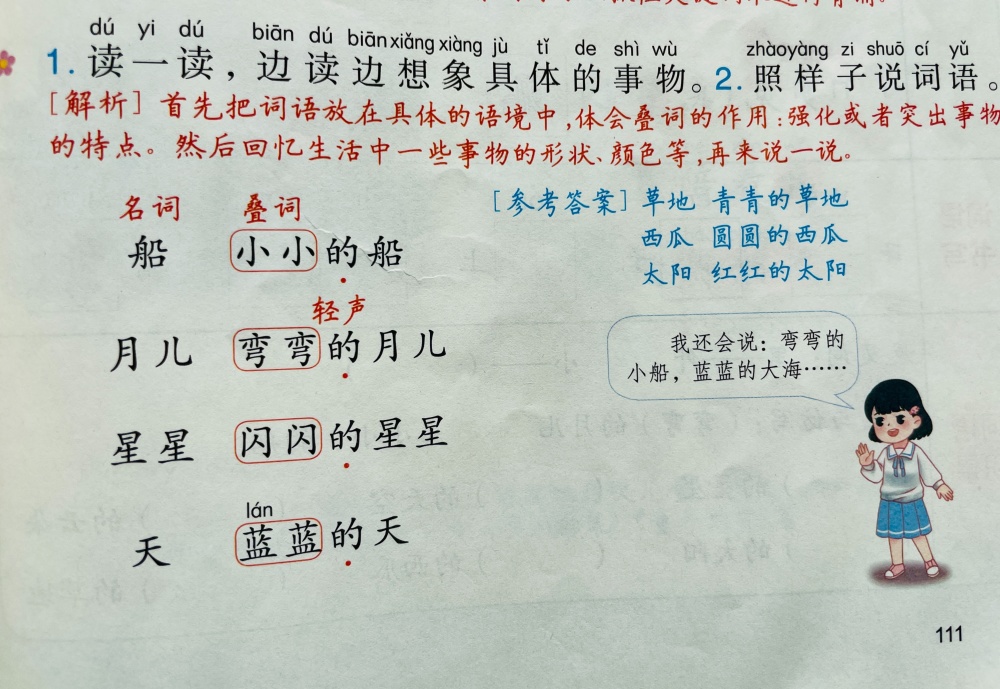 dú yi dú biān dú biān xiǎng xiàng jù tǐ de shì wù zhàoyàng zi shuō cí yǔ
1. 读一读，边读边想象具体的事物。2. 照样子说词语。
[解析] 首先把词语放在具体的语境中，体会叠词的作用：强化或者突出事物
的特点。然后回忆生活中一些事物的形状、颜色等，再来说一说。
名词 叠词
船 小小的船
轻声
月儿 弯弯的月儿
星星 闪闪的星星
lán
天 蓝蓝的天
[参考答案] 草地 青青的草地
西瓜 圆圆的西瓜
太阳 红红的太阳
我还会说：弯弯的
小船，蓝蓝的大海……
111